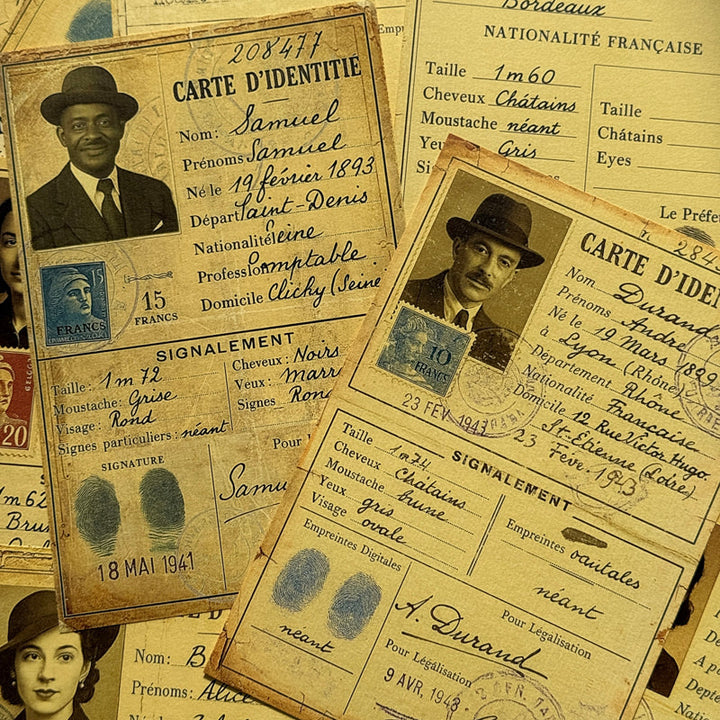 208477
CARTE D'IDENTITIE
Nom: Samuel
Prénoms Samuel
Né le 19 février 1893
Départ Saint-Denis
Nationalité Seine
Profession Comptable
Domicile Clichy (Seine
15
FRANCS
15
FRANCS
SIGNALEMENT
Taille: 1m 72
Moustache: Grise
Visage: Rond
Signes particuliers: néant
Cheveux: Noirs
Yeux: Marr
Signes Rond
SIGNATURE
Pour
Samu
18 MAI 1941
Bordeaux
NATIONALITÉ FRANÇAISE
Taille 1m60
Cheveux Châtains
Moustache néant
Yeu Gris
Sign
Taille
Châtains
Eyes
Le Préfe
284
CARTE D'IDE
Nom Durand
Prénoms André
Né le 19 Mars 1899
à Lyon (Rhône)
Département Rhône
Nationalité Française
Domicile 12 Rue Victor Hugo.
St-Étienne (Lodre)
23 Feve. 1943
10
FRANCS
23 FEV 1943
SIGNALEMENT
Taille 1m74
Cheveux Châtains
Moustache brune
Yeux gris
Visage ovale
Empreintes Digitales
néant
Empreintes oautales
néant
Pour Légalisation
A. Durand
Pour Légalisation
9 AVR, 1943
20
1m62
Brun
D'
Nom: B
Prénoms: Alice
Natio